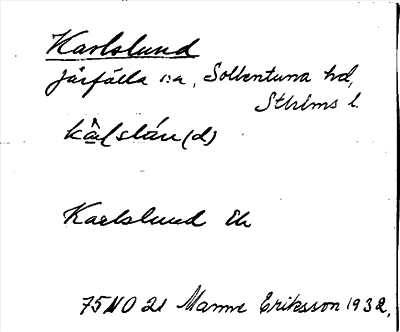 Karlslund
Järfälla s:n, Sollentuna hd,
Sthlms l.
Karlslund
75 NO 21 Manne Eriksson 1932.